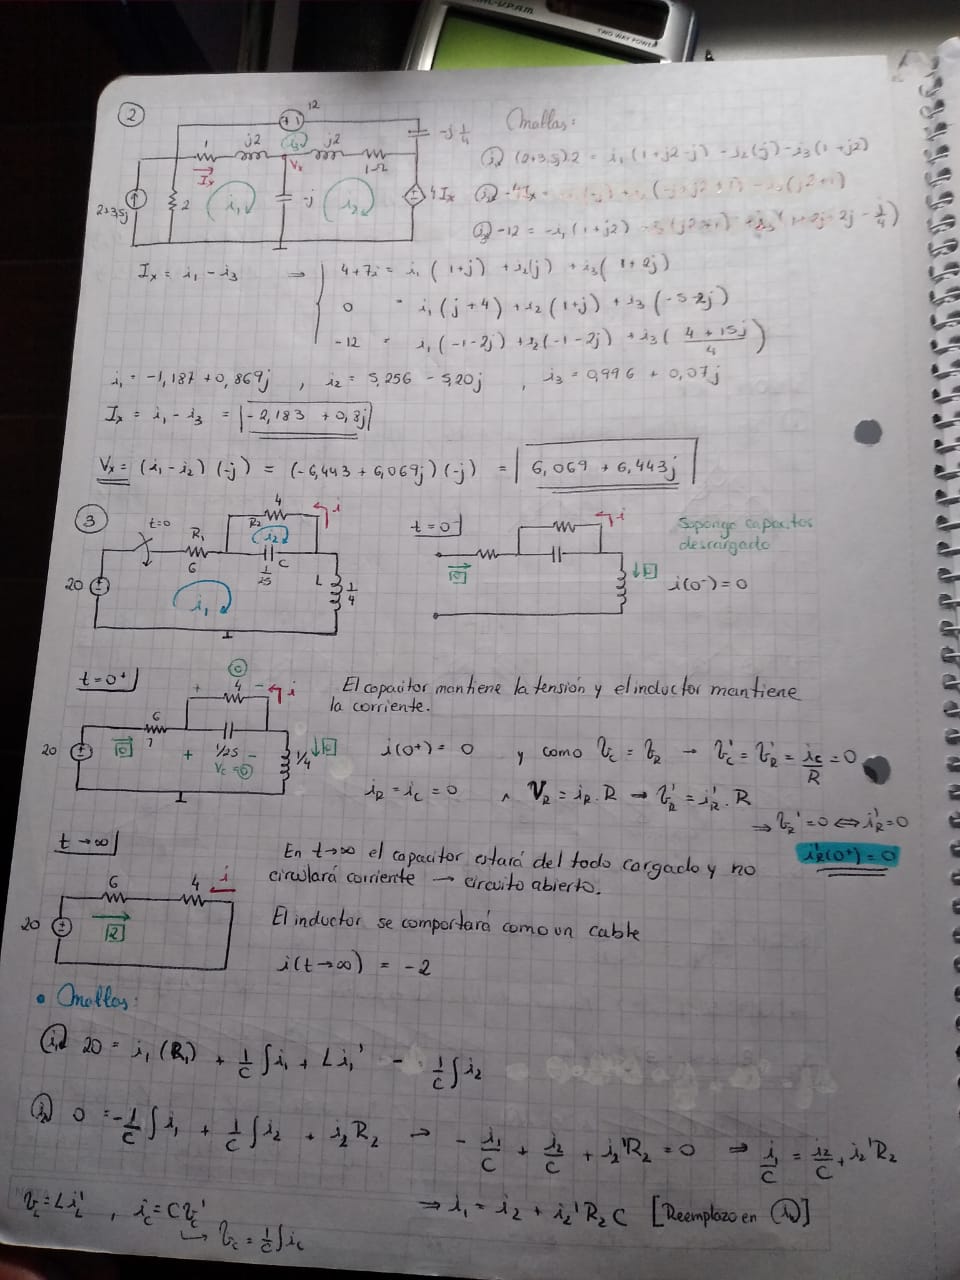 TWO WAY POWER
②
12
+ -
-j 1/4
Mallas:
1
j2
i3
j2
1Ω
Ix
Vx
2+3,5j
2
i1
-j
i2
4Ix
i1) (2+3,5j).2 = i1(1+j2-j) -i2(j) -i3(1+j2)
i2) -4Ix =
i3) -12 = -i1(1+j2)
Ix = i1 - i3 →
4+7j = i1(1+j) + i2(j) + i3(
0 = i1(j+4) + i2(1+j) + i3(-5-2j)
-12 = i1(-1-2j) + i2(-1-2j) + i3(4+15j / 4)
i1 = -1,187 + 0,869j , i2 = 5,256 - 5,20j , i3 = 0,996 + 0,07j
Ix = i1 - i3 = -2,183 + 0,8j
Vx = (i1 - i2)(-j) = (-6,443 + 6,069j)(-j) = 6,069 + 6,443j
③
t=0
R1
6
4
R2
i
i2
C
1/25
L
1/4
20
i1
t=0-
i
0
0
Supongo capacitor
descargado
i(0-) = 0
t=0+
0
+ 4 -
i
6
0
20
+ 1/25 -
Vc=0
1/4
0
El capacitor mantiene la tensión y el inductor mantiene
la corriente.
i(0+) = 0 y como Vc = VR → Vc' = VR' = ic/R = 0
iR = ic = 0 ∧ VR = iR.R → VR' = iR'.R
⇒ VR' = 0 ⇔ iR' = 0
iR'(0+) = 0
t→∞
6
4
i
20
2
En t→∞ el capacitor estará del todo cargado y no
circulará corriente → circuito abierto.
El inductor se comportará como un cable
i(t→∞) = -2
• Mallas:
i1) 20 = i1(R1) + 1/C ∫i1 + Li1' - 1/C ∫i2
i2) 0 = -1/C ∫i1 + 1/C ∫i2 + i2R2 → -i1/C + i2/C + i2'R2 = 0 ⇒ i1/C = i2/C + i2'R2
VL = LiL' , ic = CVc' ⇒ i1 = i2 + i2'R2C [Reemplazo en i1]
↳ Vc = 1/C ∫ic